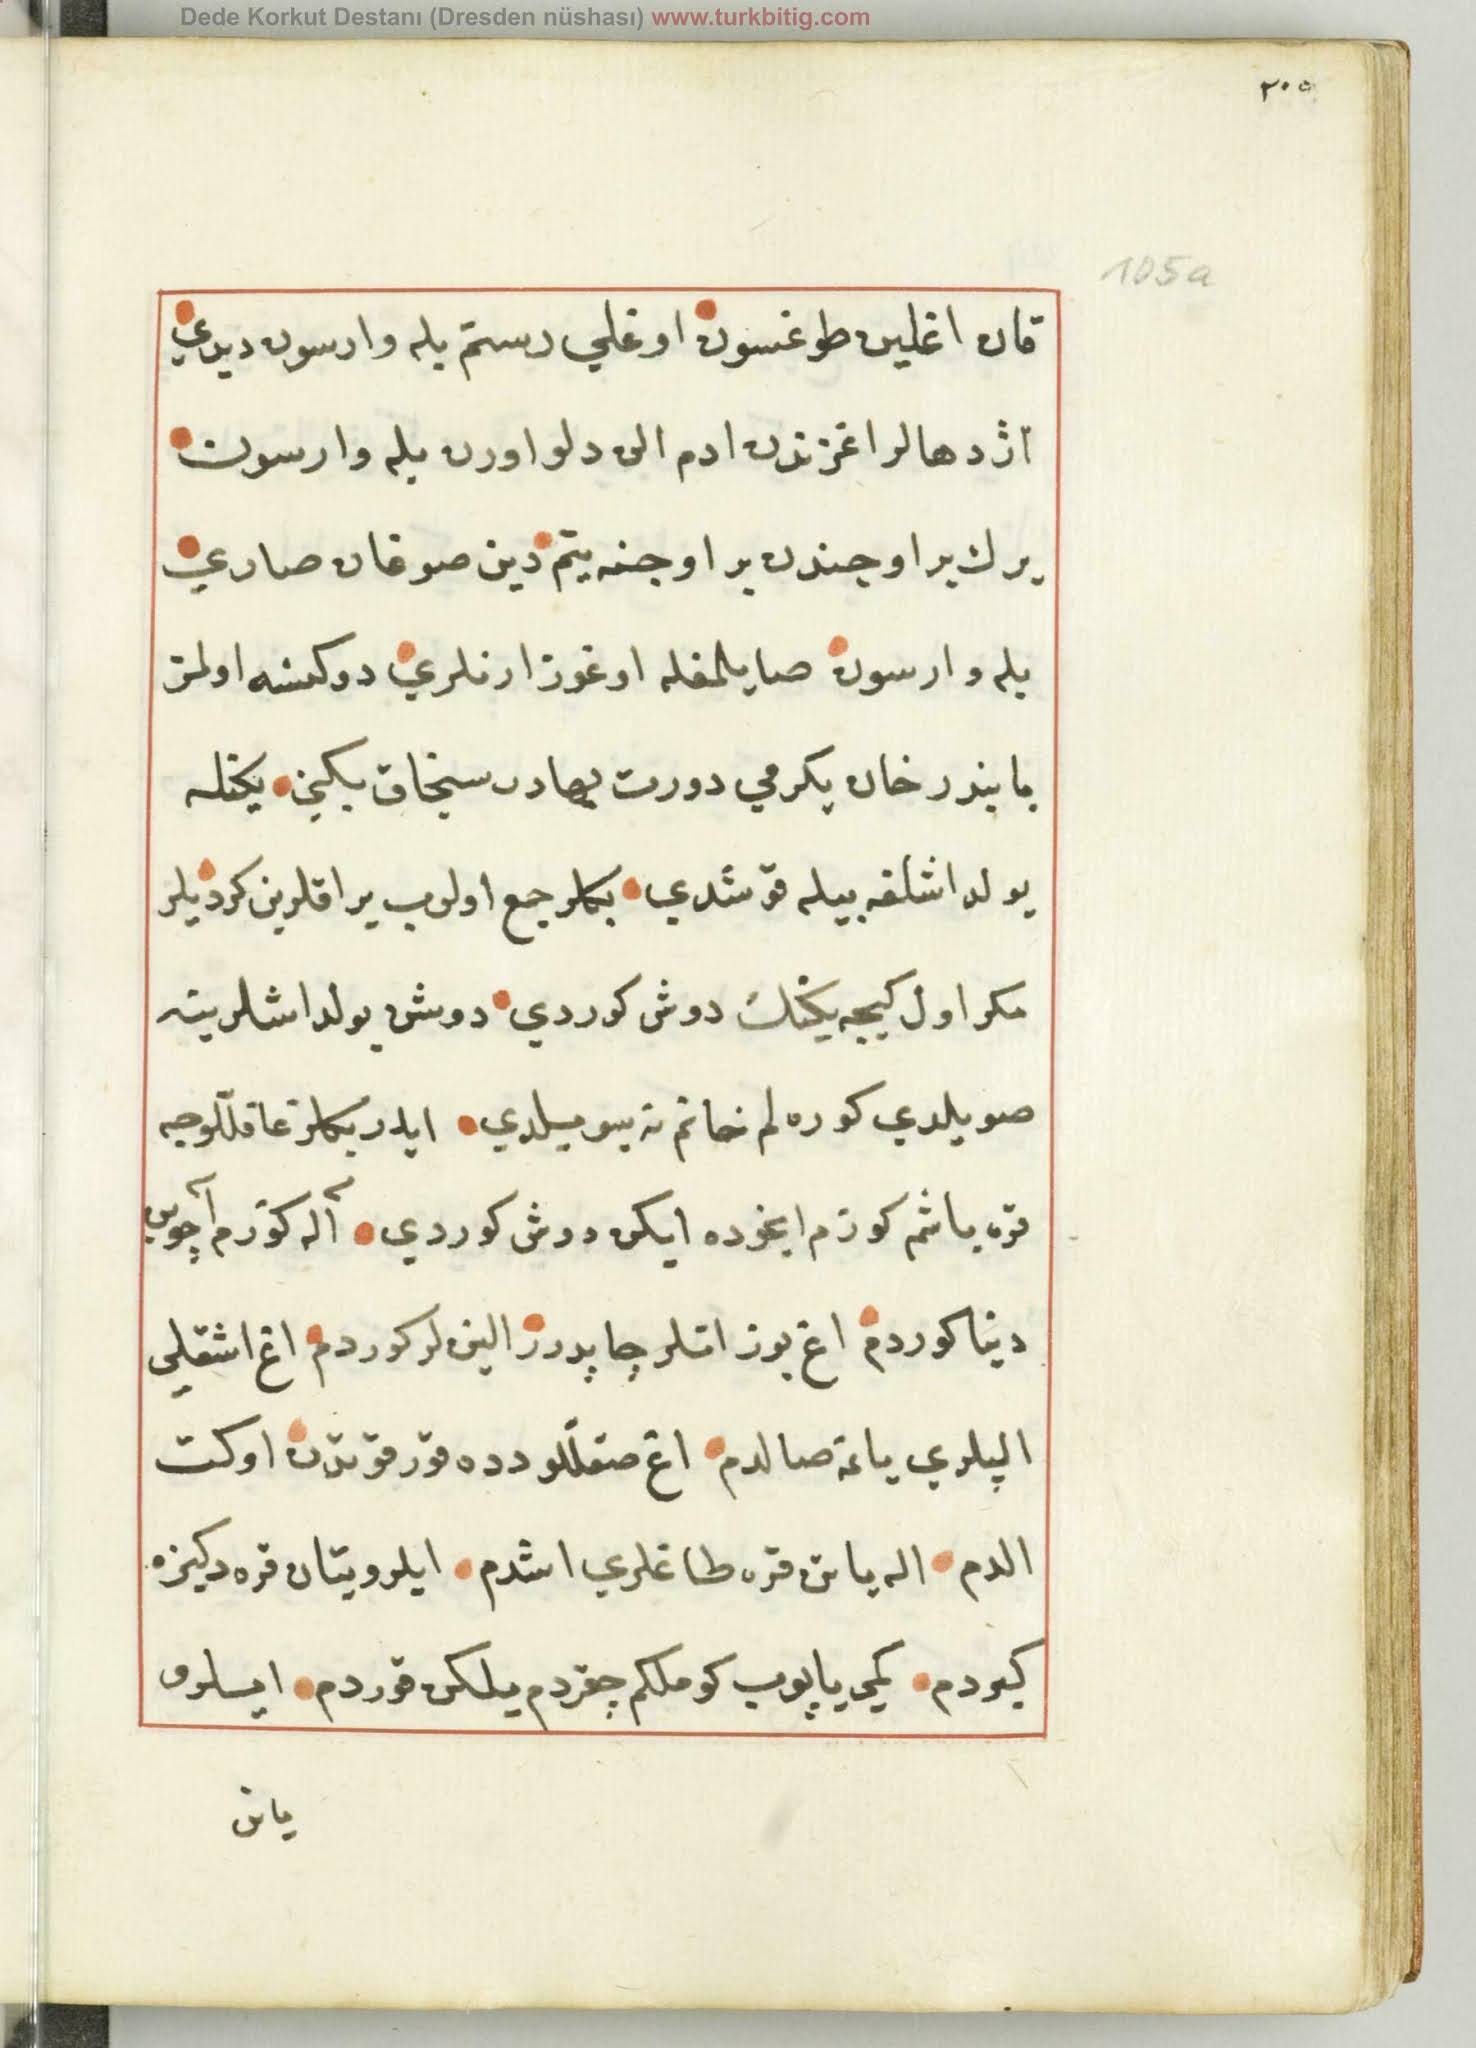 Dede Korkut Destanı (Dresden nüshası) www.turkbitig.com
٢٠٥
105a
قان اغلین طوغسون اوغلي رستم بله وارسون دیدي
اژدهالر اغزندن ادم الن دلو اورن بله وارسون
یرك بر اوجندن بر اوجنه یتم دین صوغان صاري
بله وارسون صایلمغله اوغوز ارنلري دوكنسه اولمز
بایندر خان یكرمي دورت بهادر سنجاق بكین یكنله
یولداشلغه بیله قوشدي بكلر جمع اولوب یراقلرین كردیلر
مكر اول كیجه یكنك دوش كوردي دوش یولداشلرینه
صویلدي كوره لم خانم نه سویلدي ایدر بكلر غافللوجه
قره باشم كوزم ایخوده ایكن دوش كوردي اله كوزم آچوبن
دنیا كوردم اغ بوز اتلر چاپدرر الین لر كوردم اغ اشقلي
الپلري یانمه صالدم اغ صقللو دده قورقوتدن اوكت
الدم اله یاتن قره طاغلري اشدم ایلرو یتان قره دكیزه
كیردم كمي یاپوب كوملكم چقردم یلكن قوردم ایلرو
یاتن